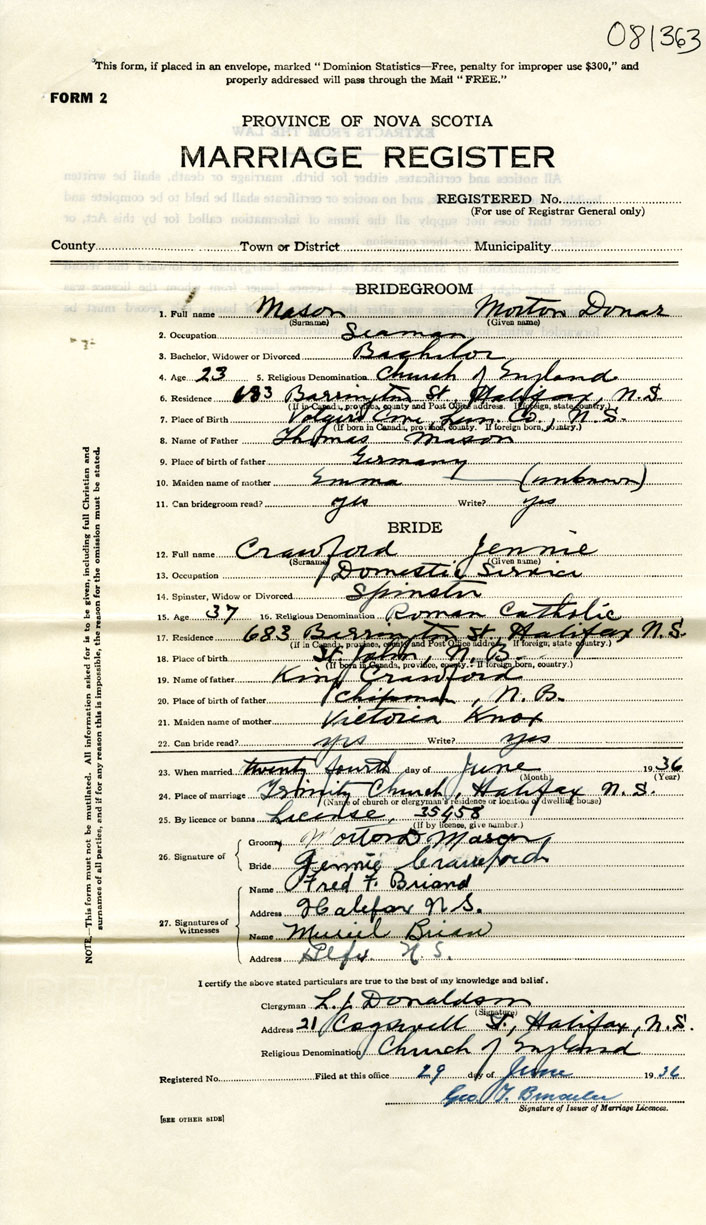 081363
"This form, if placed in an envelope, marked "Dominion Statistics—Free, penalty for improper use $300," and
properly addressed will pass through the Mail "FREE."
FORM 2
PROVINCE OF NOVA SCOTIA
MARRIAGE REGISTER
REGISTERED No.
(For use of Registrar General only)
County Town or District Municipality
BRIDEGROOM
1. Full name Mason Morton Donar
(Surname) (Given name)
2. Occupation Seaman
3. Bachelor, Widower or Divorced Bachelor
4. Age 23 5. Religious Denomination Church of England
6. Residence 683 Barrington St. Halifax, N.S.
(If in Canada, province, county and Post Office address. If foreign, state country.)
7. Place of Birth Cove Lun. Co., N.S.
(If born in Canada, province, county. If foreign born, country.)
8. Name of Father Thomas Mason
9. Place of birth of father Germany
10. Maiden name of mother Emma (unknown)
11. Can bridegroom read? yes Write? yes
BRIDE
12. Full name Crawford Jennie
(Surname) (Given name)
13. Occupation Domestic Service
14. Spinster, Widow or Divorced Spinster
15. Age 37 16. Religious Denomination Roman Catholic
17. Residence 683 Barrington St. Halifax N.S.
(If in Canada, province, county and Post Office address. If foreign, state country.)
18. Place of birth St. John, N.B.
(If born in Canada, province, county. If foreign born, country.)
19. Name of father King Crawford
20. Place of birth of father Chipman, N.B.
21. Maiden name of mother Victoria Knox
22. Can bride read? yes Write? yes
23. When married twenty fourth day of June 1936
(Month) (Year)
24. Place of marriage Trinity Church, Halifax N.S.
(Name of church or clergyman's residence or location of dwelling house)
25. By licence or banns License, 35458
(If by licence, give number.)
26. Signature of
Groom Morton D Mason
Bride Jennie Crawford
27. Signatures of Witnesses
Name Fred F. Briand
Address Halifax N.S.
Name Muriel Brian
Address Hlfx N.S.
I certify the above stated particulars are true to the best of my knowledge and belief.
Clergyman L. J. Donaldson
(Signature)
Address 21 Cogswell St., Halifax, N.S.
Religious Denomination Church of England
Registered No. Filed at this office 29 day of June 1936
Geo. T.
Signature of Issuer of Marriage Licences.
[SEE OTHER SIDE]
NOTE.—This form must not be mutilated. All information asked for is to be given, including full Christian and
surnames of all parties, and if for any reason this is impossible, the reason for the omission must be stated.